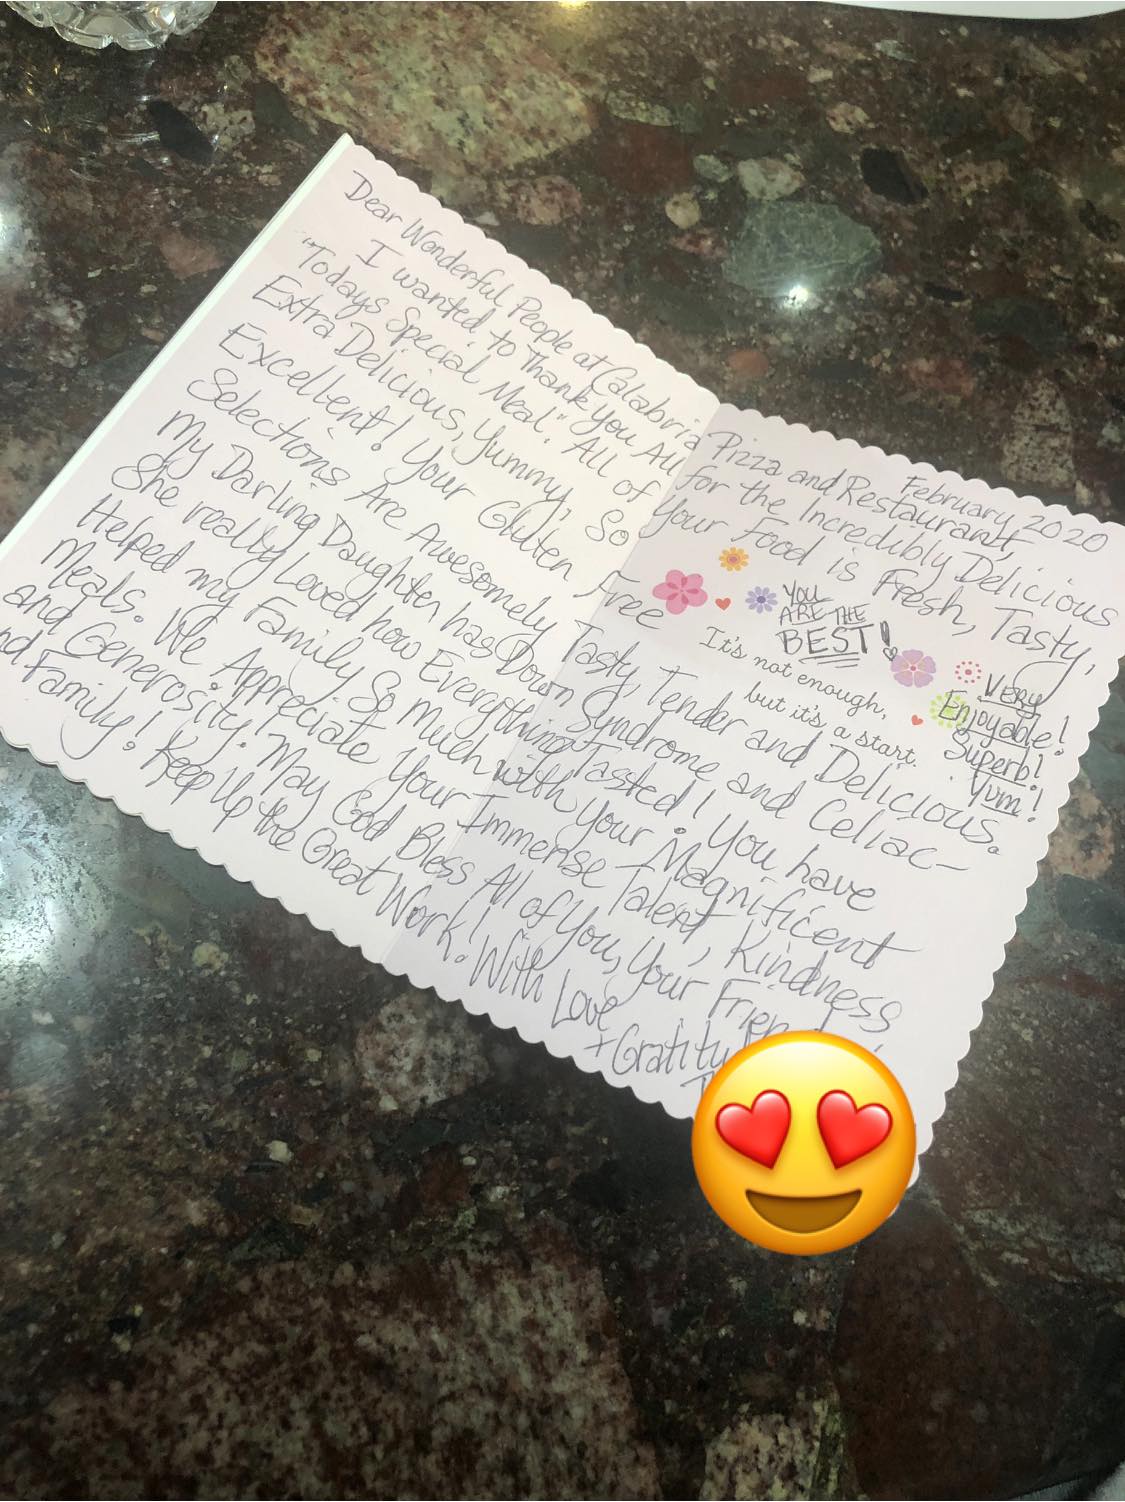 February 2020
Dear Wonderful People at Calabria Pizza and Restaurant,
I wanted to Thank you All for the Incredibly Delicious
"Todays Special Meal". All of Your Food is Fresh, Tasty,
Extra Delicious, Yummy, So
Excellent! Your Gluten Free
YOU
ARE THE
BEST!
It's not enough,
but it's a start.
VERY
Enjoyable!
Superb!
Yum!
Selections Are Awesomely Tasty, Tender and Delicious.
My Darling Daughter has Down Syndrome and Celiac-
She really Loved how Everything Tasted! You have
Helped my Family So Much with Your Magnificent
Meals. We Appreciate Your Immense Talent, Kindness
and Generosity! May God Bless All of You, Your
nd Family! Keep Up the Great Work! With Love
+Gratitu